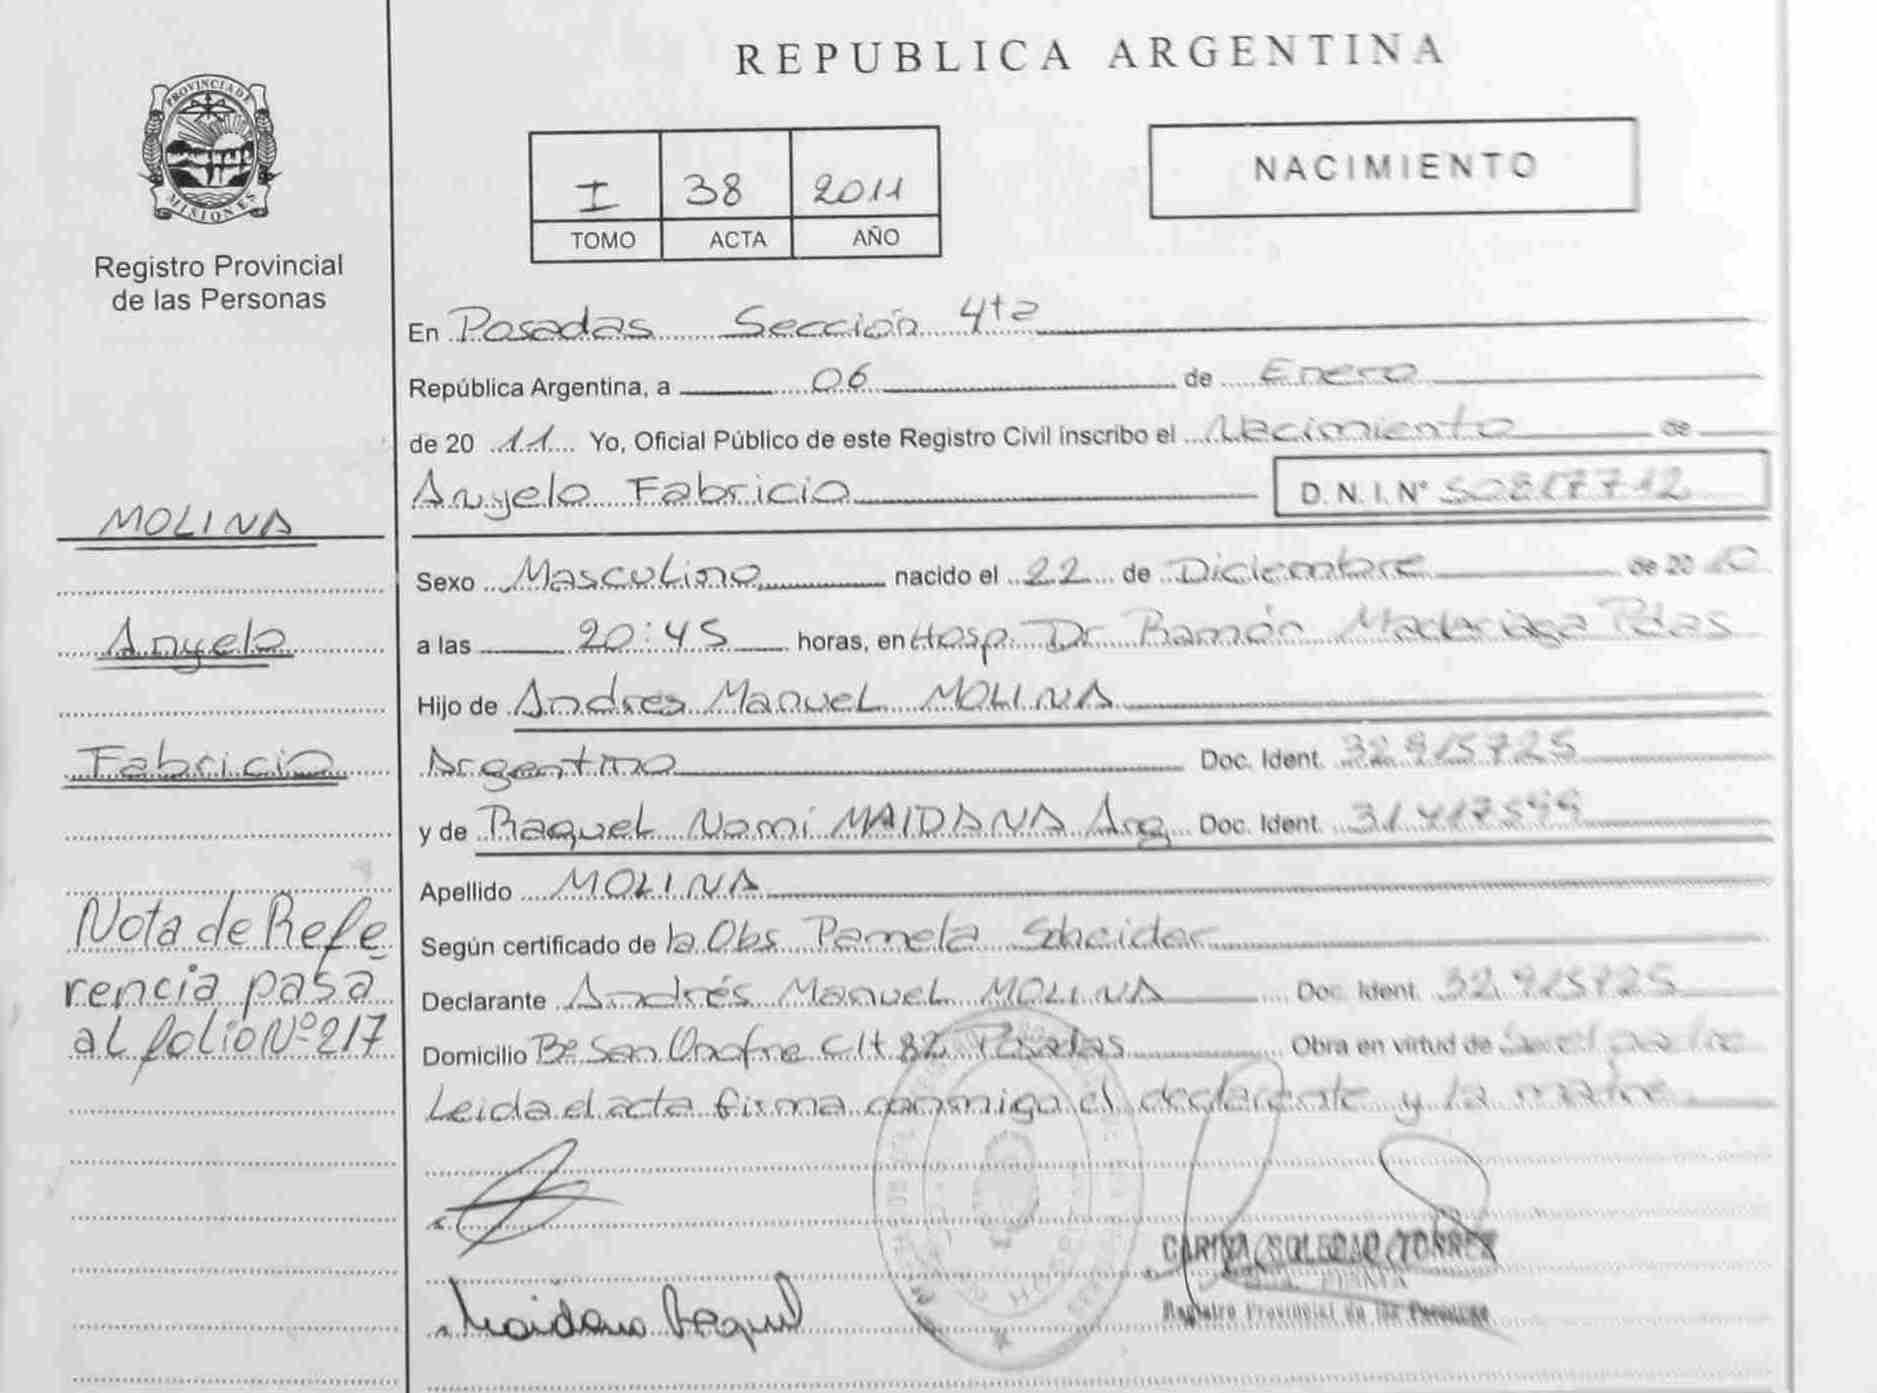 REPUBLICA ARGENTINA
PROVINCIA DE MISIONES
Registro Provincial
de las Personas
I 38 2011
TOMO ACTA AÑO
NACIMIENTO
En Posadas Sección 4ta
República Argentina, a 06 de Enero
de 20 11 Yo, Oficial Público de este Registro Civil inscribo el Nacimiento de
Anyelo Fabricio D. N. I. N°
MOLINA
Anyelo
Fabricio
Sexo Masculino nacido el 22 de Diciembre de 20 10
a las 20:45 horas, en Hosp. Dr Ramón Madariaga Pdas
Hijo de Andres Manuel MOLINA
Argentino Doc. Ident. 32.915725
y de Raquel Nomi MAIDANA Arg Doc. Ident.
Apellido MOLINA
Según certificado de la Obs Pamela
Declarante Andrés Manuel MOLINA Doc. Ident. 32.915725
Domicilio Bº San Onofre C 82 Posadas Obra en virtud de ser el padre
Leida el acta firma conmigo el declarante y la madre
Nota de Refe
rencia pasa
al folio Nº 217
Maidana Raquel
CARINA SOLEDAD TORRES
Registro Provincial de las Personas